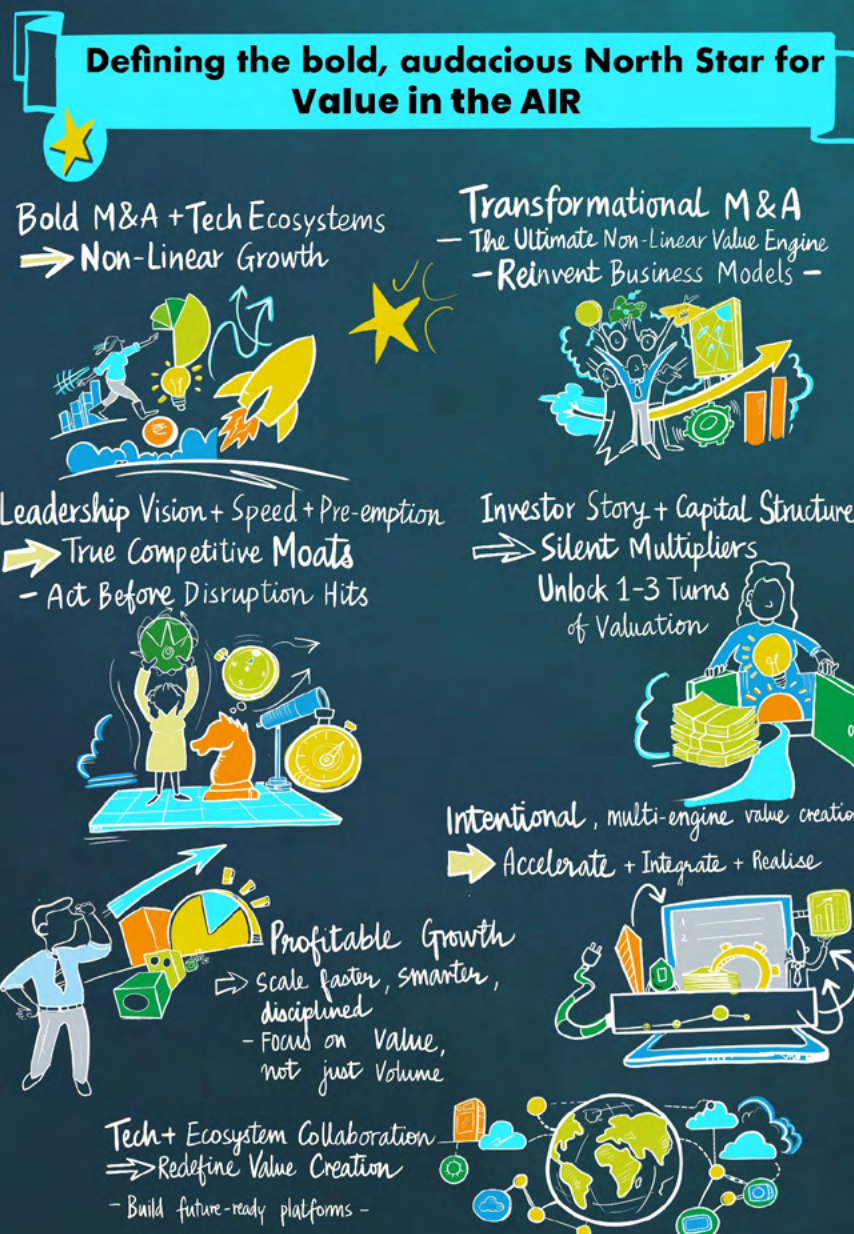 Defining the bold, audacious North Star for
Value in the AIR
Bold M&A + Tech Ecosystems
Non-Linear Growth
Transformational M&A
— The Ultimate Non-Linear Value Engine
— Reinvent Business Models —
₹
Leadership Vision + Speed + Pre-emption
True Competitive Moats
- Act Before Disruption Hits
Investor Story + Capital Structure
Silent Multipliers
Unlock 1-3 Turns
of Valuation
Intentional, multi-engine value creation
Accelerate + Integrate + Realise
1
2
Profitable Growth
Scale faster, smarter,
disciplined
- Focus on Value,
not just Volume
Tech + Ecosystem Collaboration
Redefine Value Creation
- Build future-ready platforms -